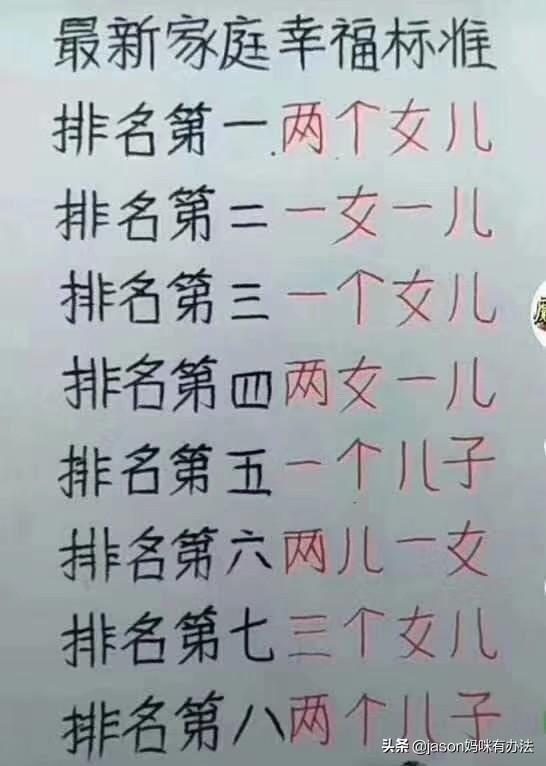 最新家庭幸福标准
排名第一两个女儿
排名第二一女一儿
排名第三一个女儿
排名第四两女一儿
排名第五一个儿子
排名第六两儿一女
排名第七三个女儿
排名第八两个儿子
头条 @jason妈咪有办法